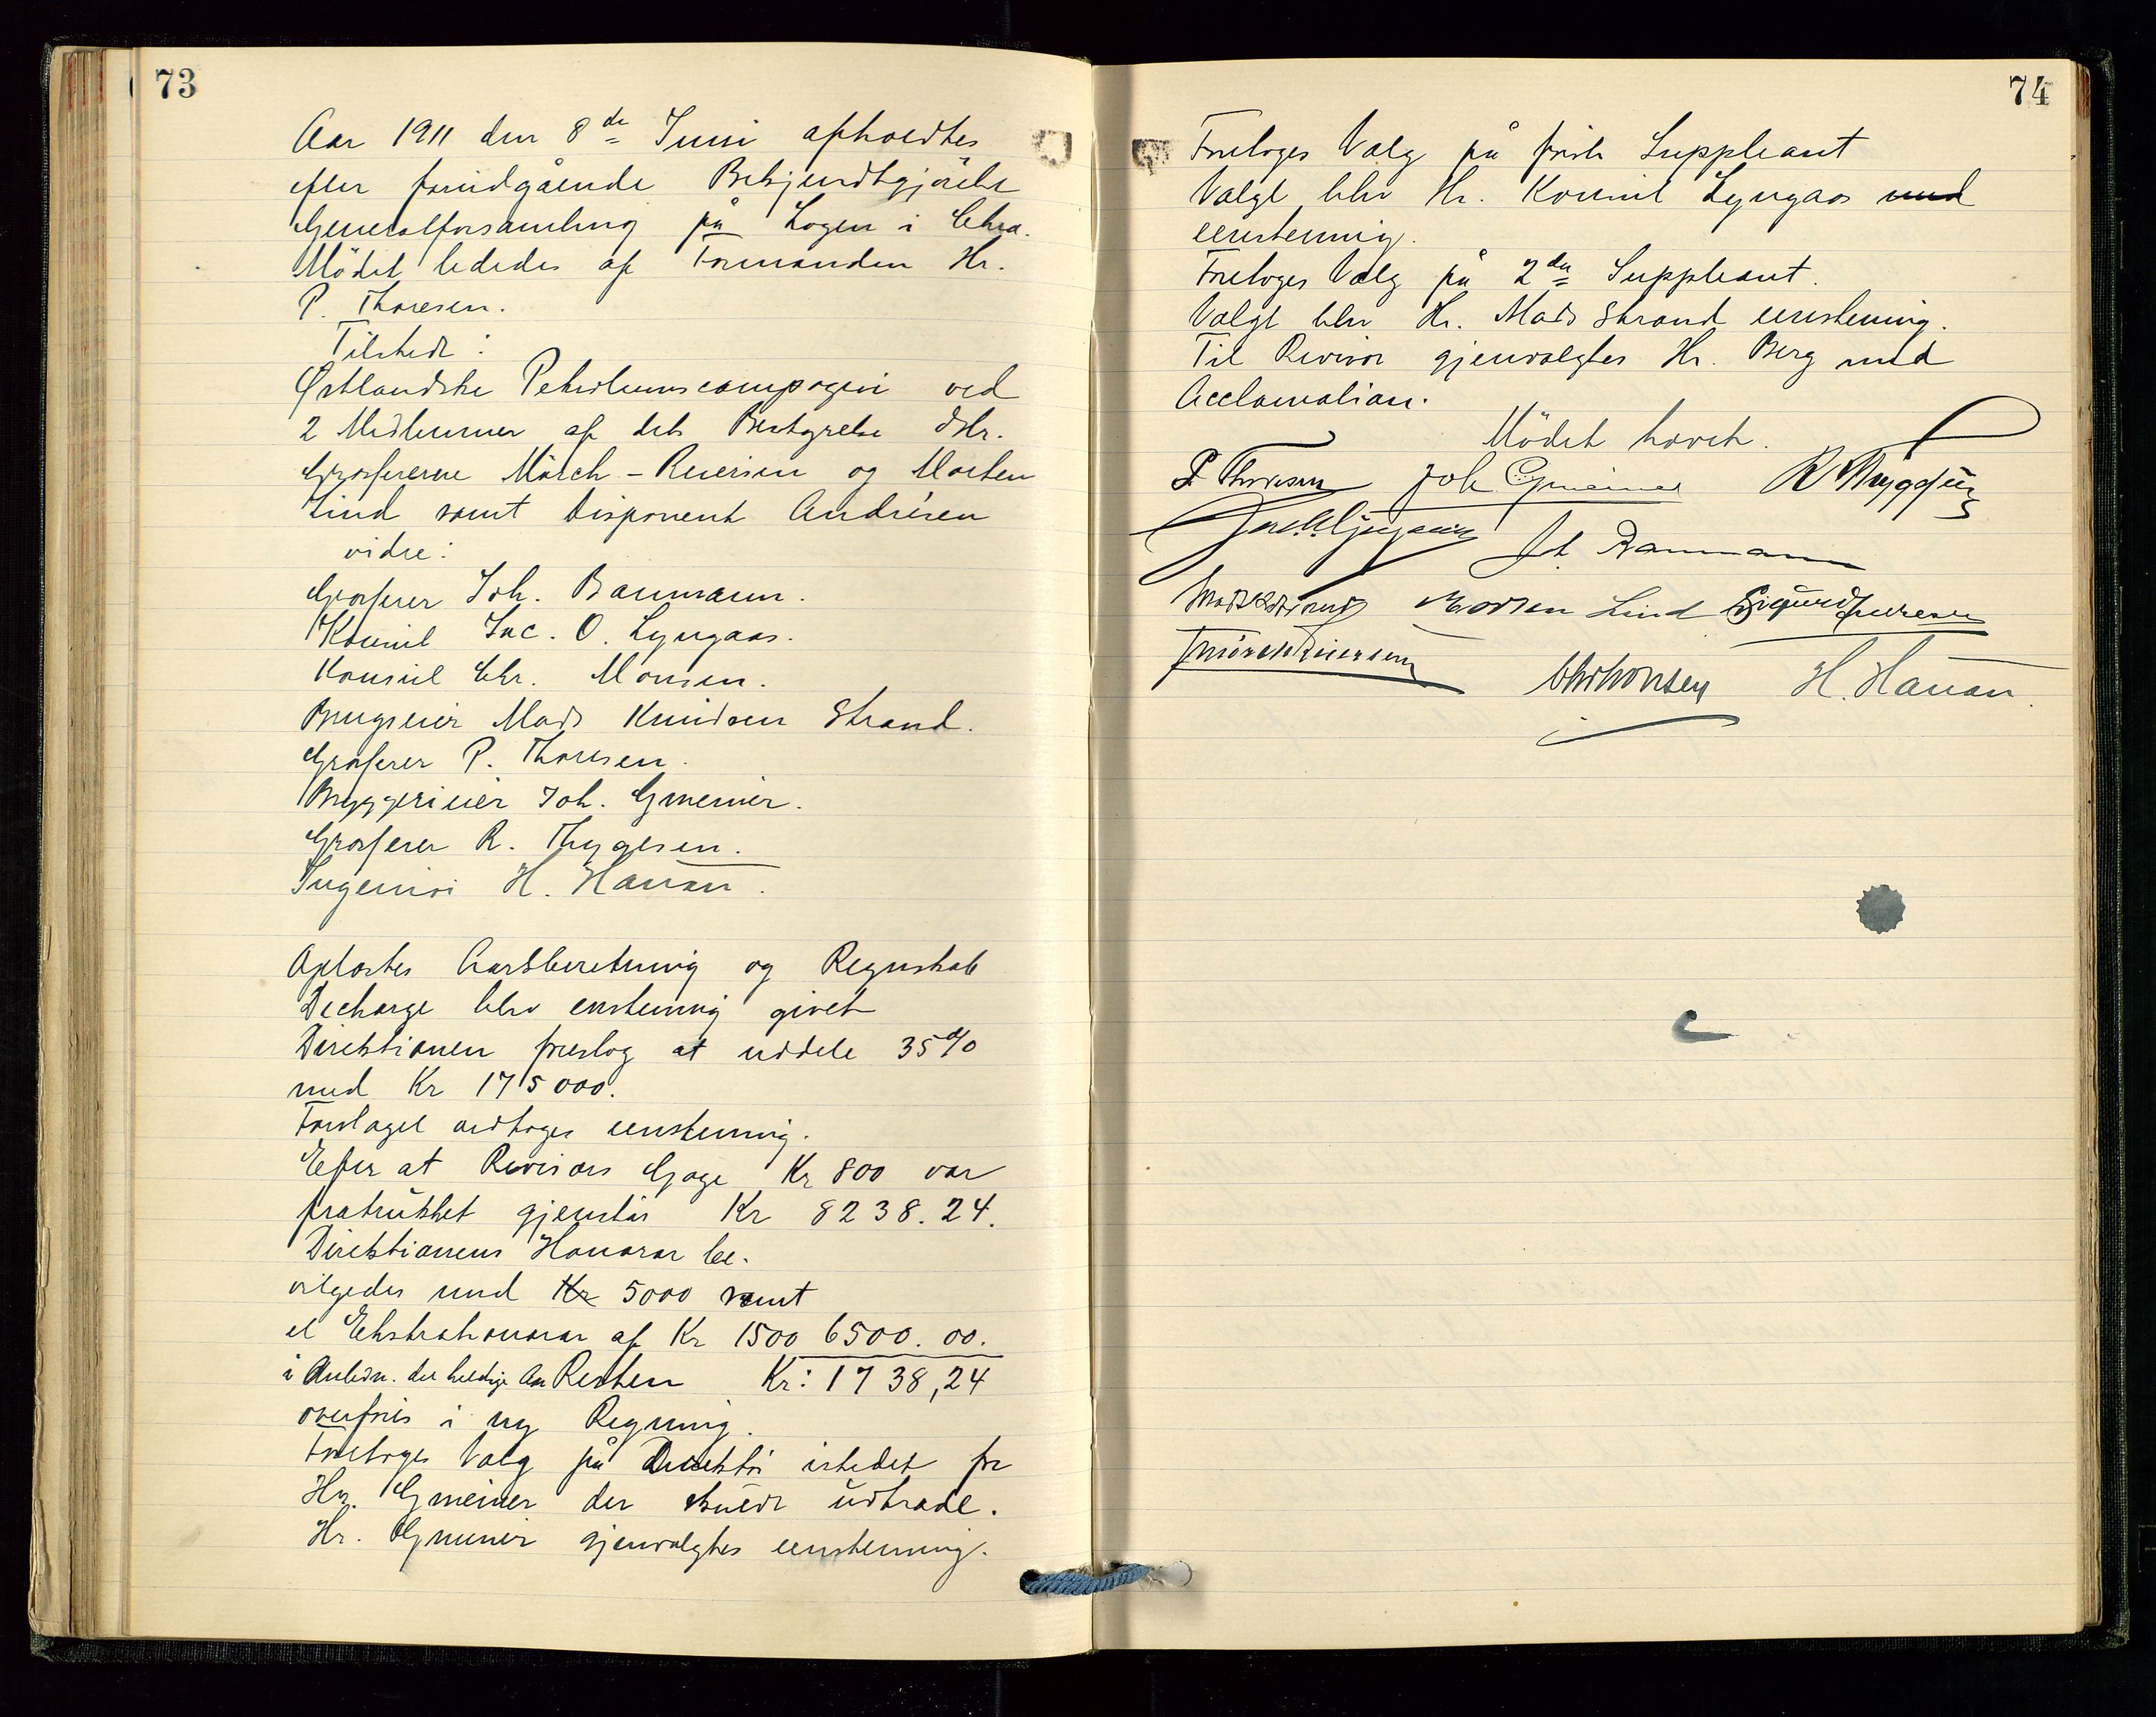 73
Aar 1911 den 8de Juni afholdtes
efter forudgående Bekjendtgjörelse
Generalforsamling på Logen i Chra.
Mödet lededes af Formanden Hr.
P. Thoresen.
Tilstede:
Østlandske Petroleumscompagni ved
2 Medlemmer af dets Bestyrelse dHr.
Grosfererne Mörch-Reiersen og Morten
Lind samt Disponent Andresen
vidre:
Grosferer Joh. Baumann.
Konsul Jac. O. Lyngaas.
Konsul Chr. Monsen.
Brugseier Mads Knudsen Strand.
Grosferer P. Thoresen.
Bryggerieier Joh. Gmeiner.
Grosferer R. Thygesen.
Ingeniör H. Hauan.
Oplæstes Aarsberetning og Regnskab
Decharge blev enstemmig givet
Direktionen foreslog at uddele 35%
med Kr 175000.
Forslaget vedtoges eenstemmig.
Efter at Revisors Gage Kr 800 var
fratrukket gjenstår Kr 8238.24.
Direktionens Honorar be-
vilgedes med Kr 5000 samt
et Ekstrahonorar af Kr 1500 6500.00.
i Anledn. det heldige Aar Resten Kr: 1738,24
overføres i ny Regning.
Foretoges Valg på Direktör istedet for
Hr. Gmeiner der skulde udtræde.
Hr. Gmeiner gjenvalgtes eenstemmig.
74
Foretoges Valg på første Suppleant
Valgt blev Hr. Konsul Lyngaas med
eenstemmig.
Foretoges Valg på 2den Suppleant.
Valgt blev Hr. Mads Strand eenstemmig.
Til Revisor gjenvalgtes Hr. Berg med
Acclamation.
Mödet hævet.
P. Thoresen Joh Gmeiner R Thygesen
Jac. O. Lyngaas Joh. Baumann
Mads K Strand Morten Lind Sigurd
Mörch Reiersen
Chr Monsen H. Hauan.